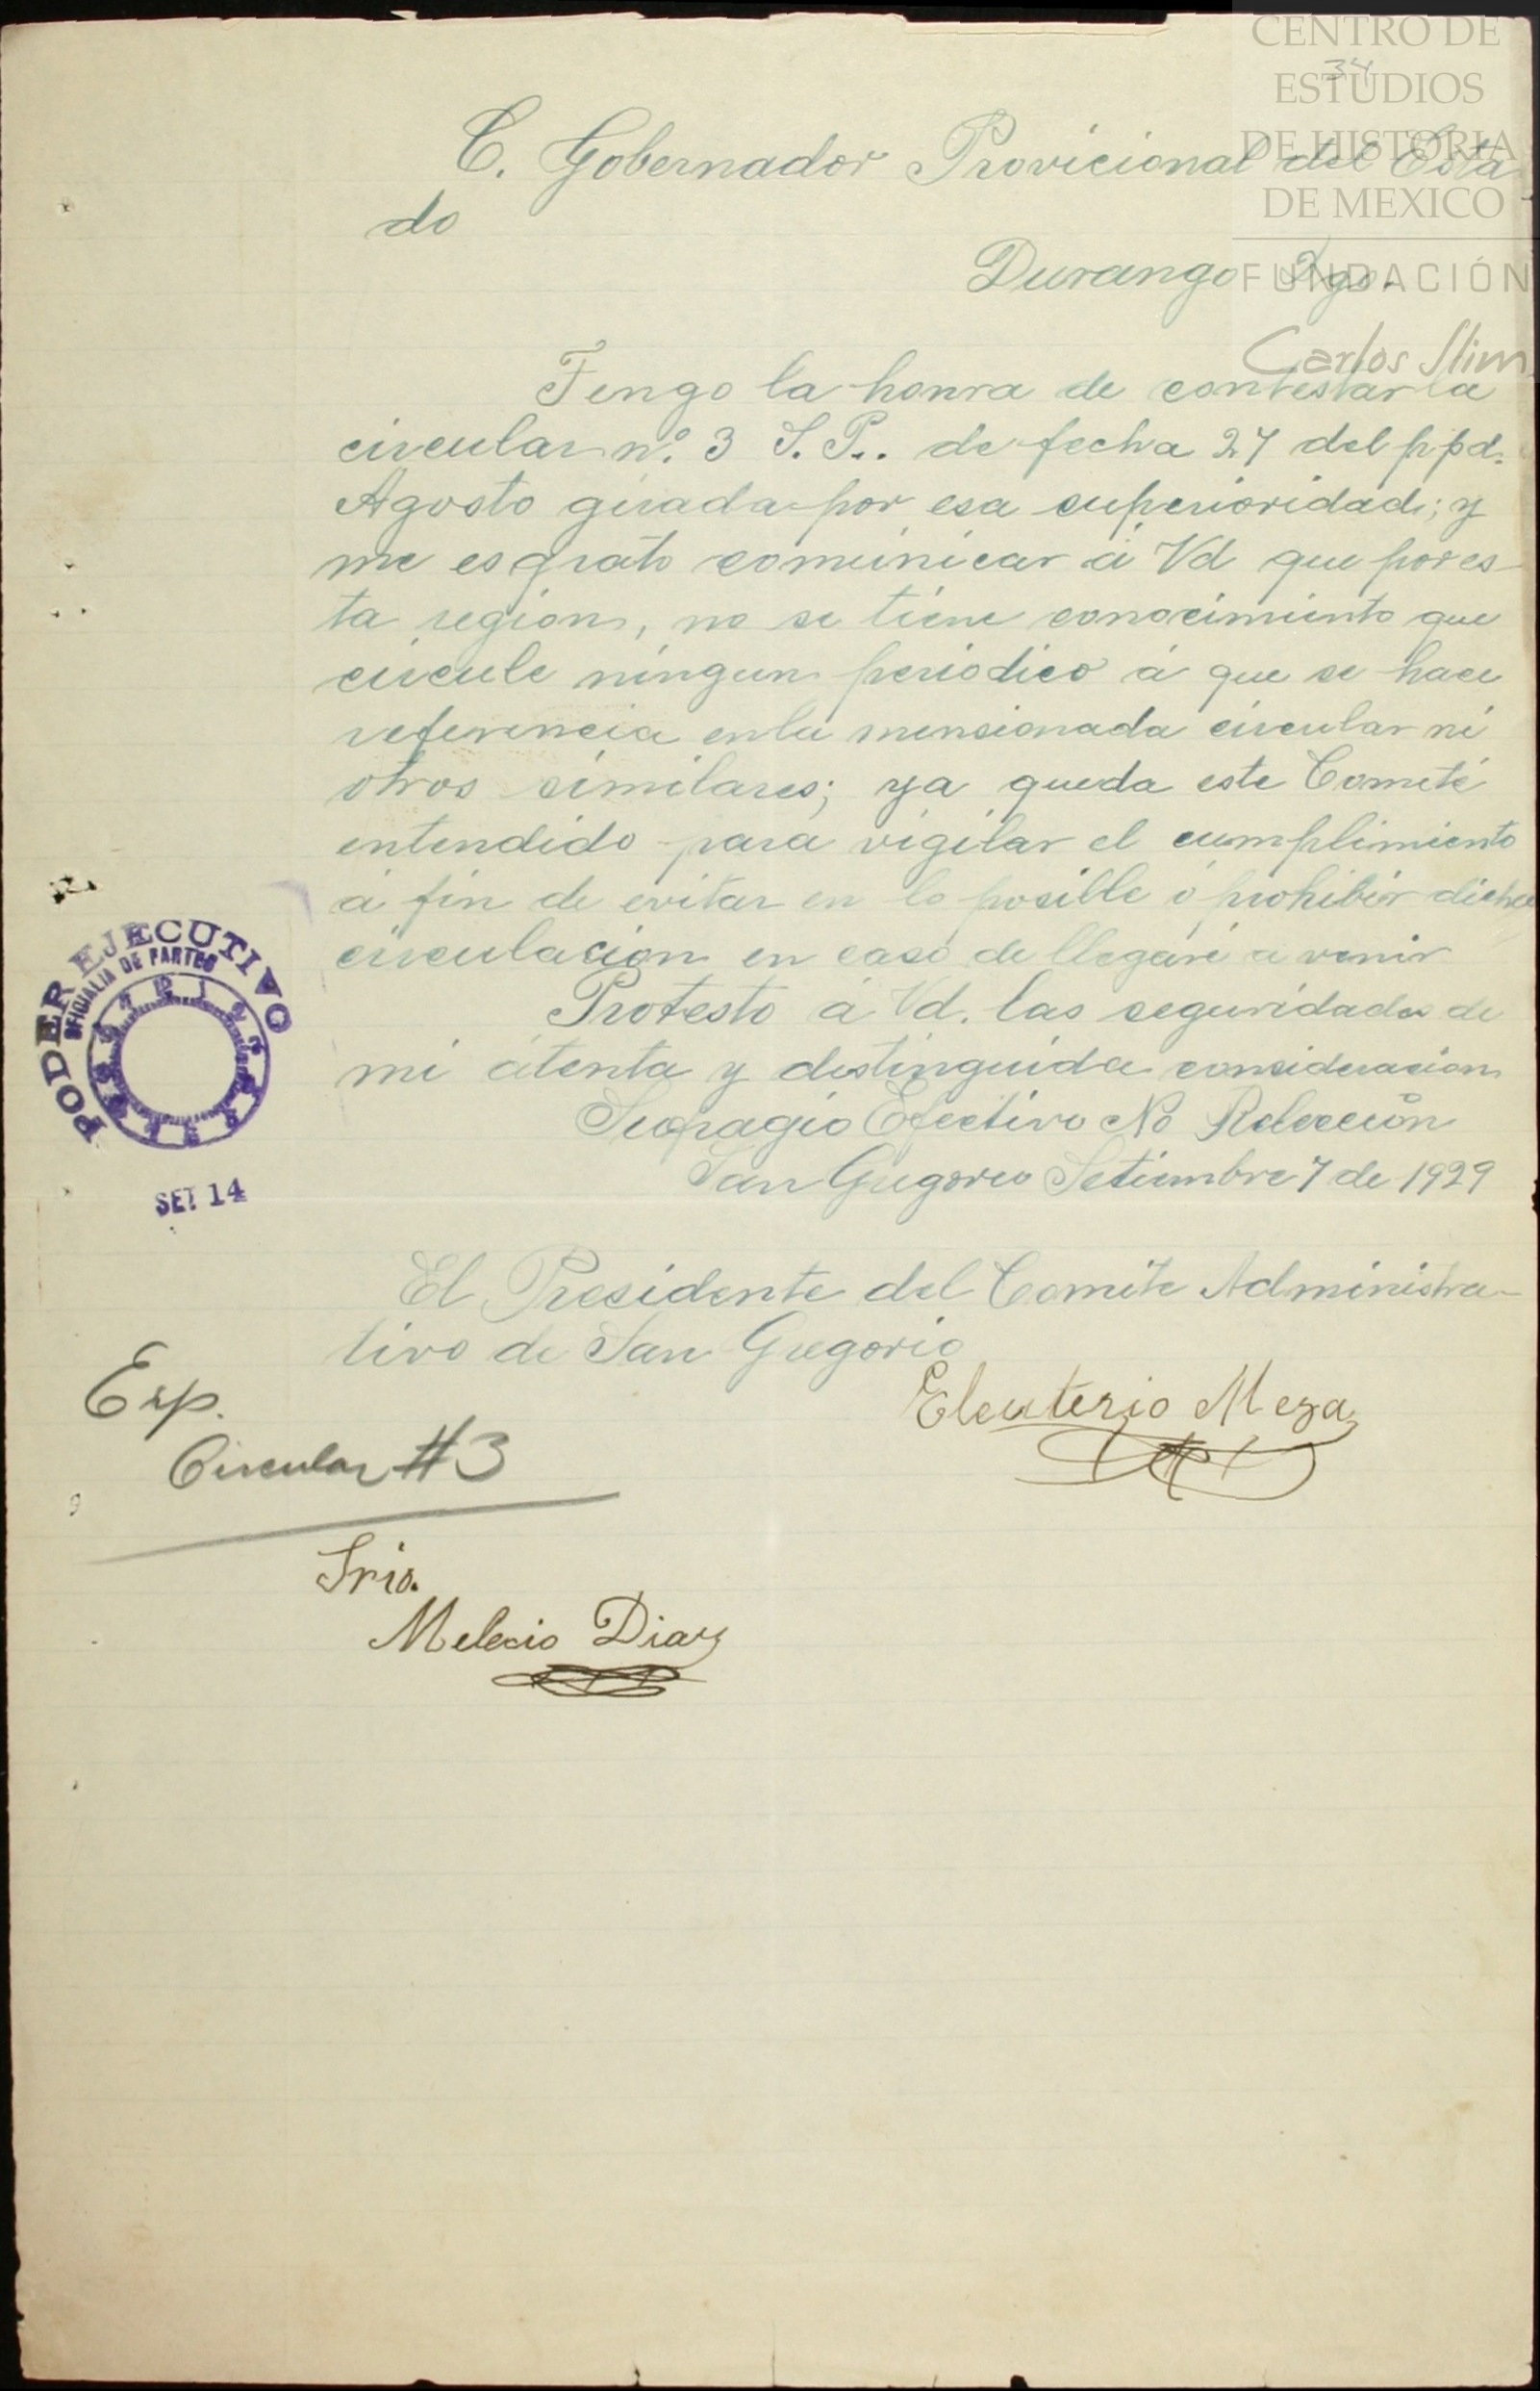 CENTRO DE
ESTUDIOS
DE HISTORIA
DE MEXICO
FUNDACIÓN
Carlos Slim
34
C. Gobernador Provicional del Esta
do
Durango Dgo.
Tengo la honra de contestar la
circular nº. 3 S. P.. de fecha 27 del ppd.
Agosto girada por esa superioridad; y
me es grato comunicar á Vd que por es-
ta region, no se tiene conocimiento que
circule ningun periodico á que se hace
referencia en la mensionada circular ni
otros similares; ya queda este Cometé
entendido para vigilar el cumplimiento
á fin de evitar en lo posible ó prohibir dicha
circulacion en caso de llegare a venir
Protesto á Vd. las seguridades de
mi atenta y distinguida consideracion
Sufragio Efectivo No Relección
San Gregorio Setiembre 7 de 1929
El Presidente del Comite Administra-
tivo de San Gregorio
Eleuterio Meza
PODER EJECUTIVO
OFICIALIA DE PARTES
SET 14
Exp.
Circular #3
Srio.
Melecio Diaz